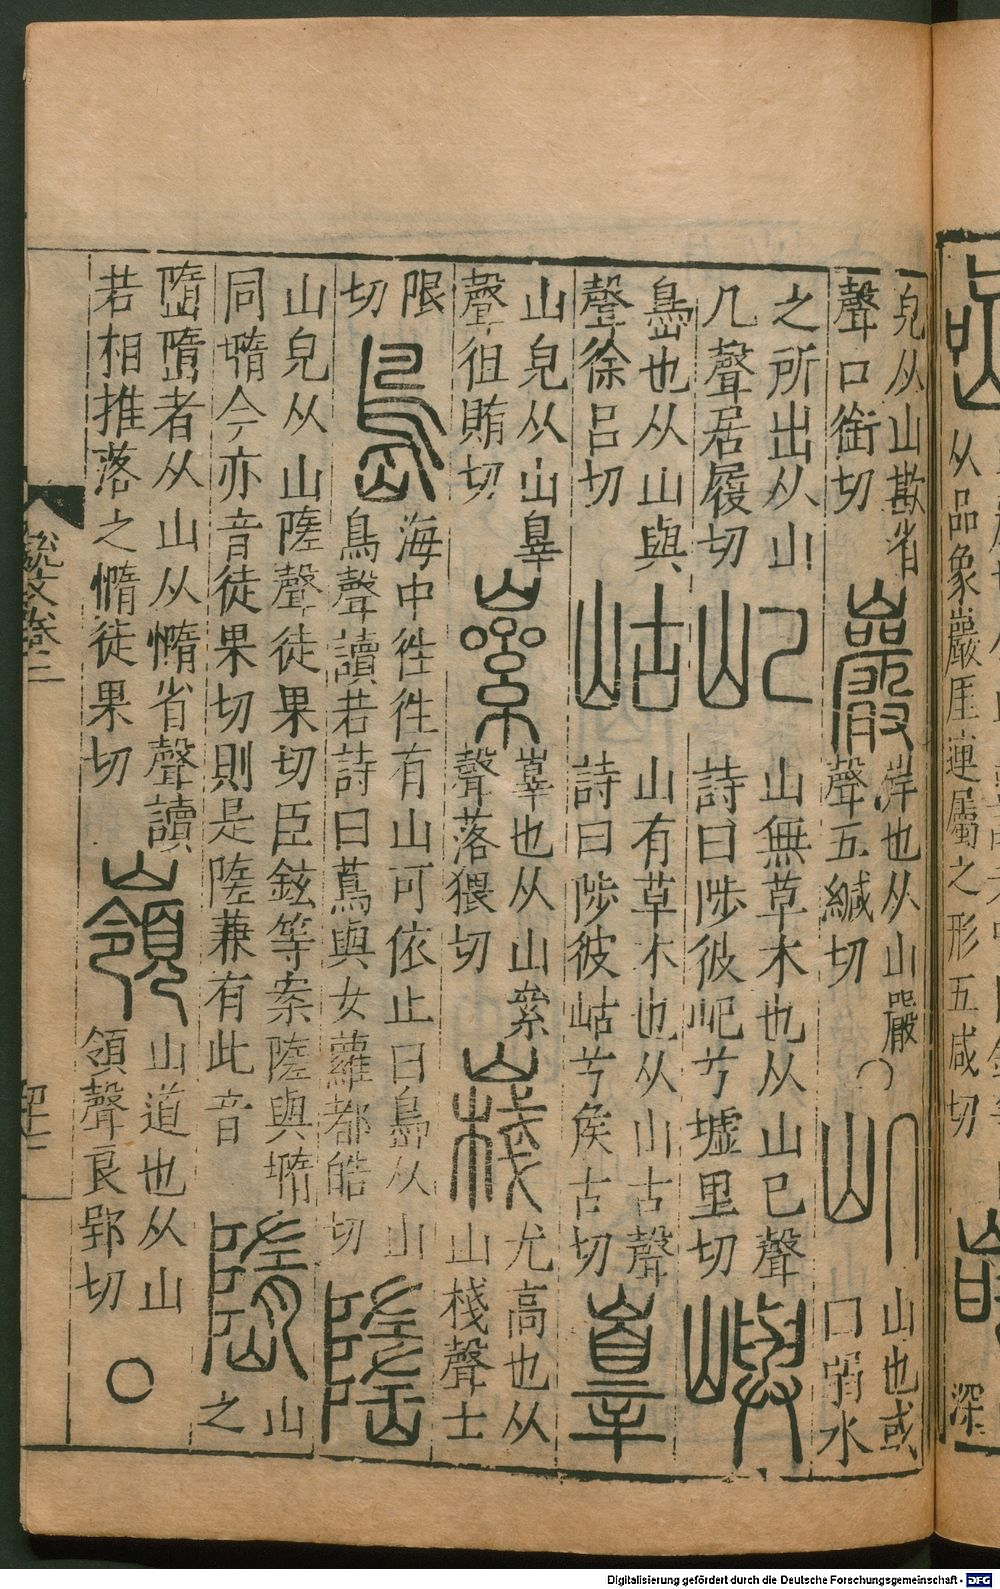 嵒
从品象巖厓連屬之形五咸切
深
皃从山歁省
聲口銜切
巖
岸也从山嚴
聲五緘切
○
𡵆
山也或
曰弱水
之所出从山
几聲居履切
屺
山無草木也从山巳聲
詩曰陟彼屺兮墟里切
㠘
㠀也从山與
聲徐呂切
岵
山有草木也从山古聲
詩曰陟彼岵兮矦古切
嶵
山皃从山辠
聲徂賄切
㠥
嶵也从山絫
聲落猥切
嶘
尤高也从
山棧聲士
限
切
㠀
海中往往有山可依止曰㠀从山
鳥聲讀若詩曰蔦與女蘿都皓切
山皃从山隓聲徒果切臣鉉等案隓與墮
同墮今亦音徒果切則是隓兼有此音
嶞
山
之
嶞嶞者从山从憜省聲讀
若相推落之憜徒果切
嶺
山道也从山
領聲良郢切
○
說文卷三
Digitalisierung gefördert durch die Deutsche Forschungsgemeinschaft - DFG